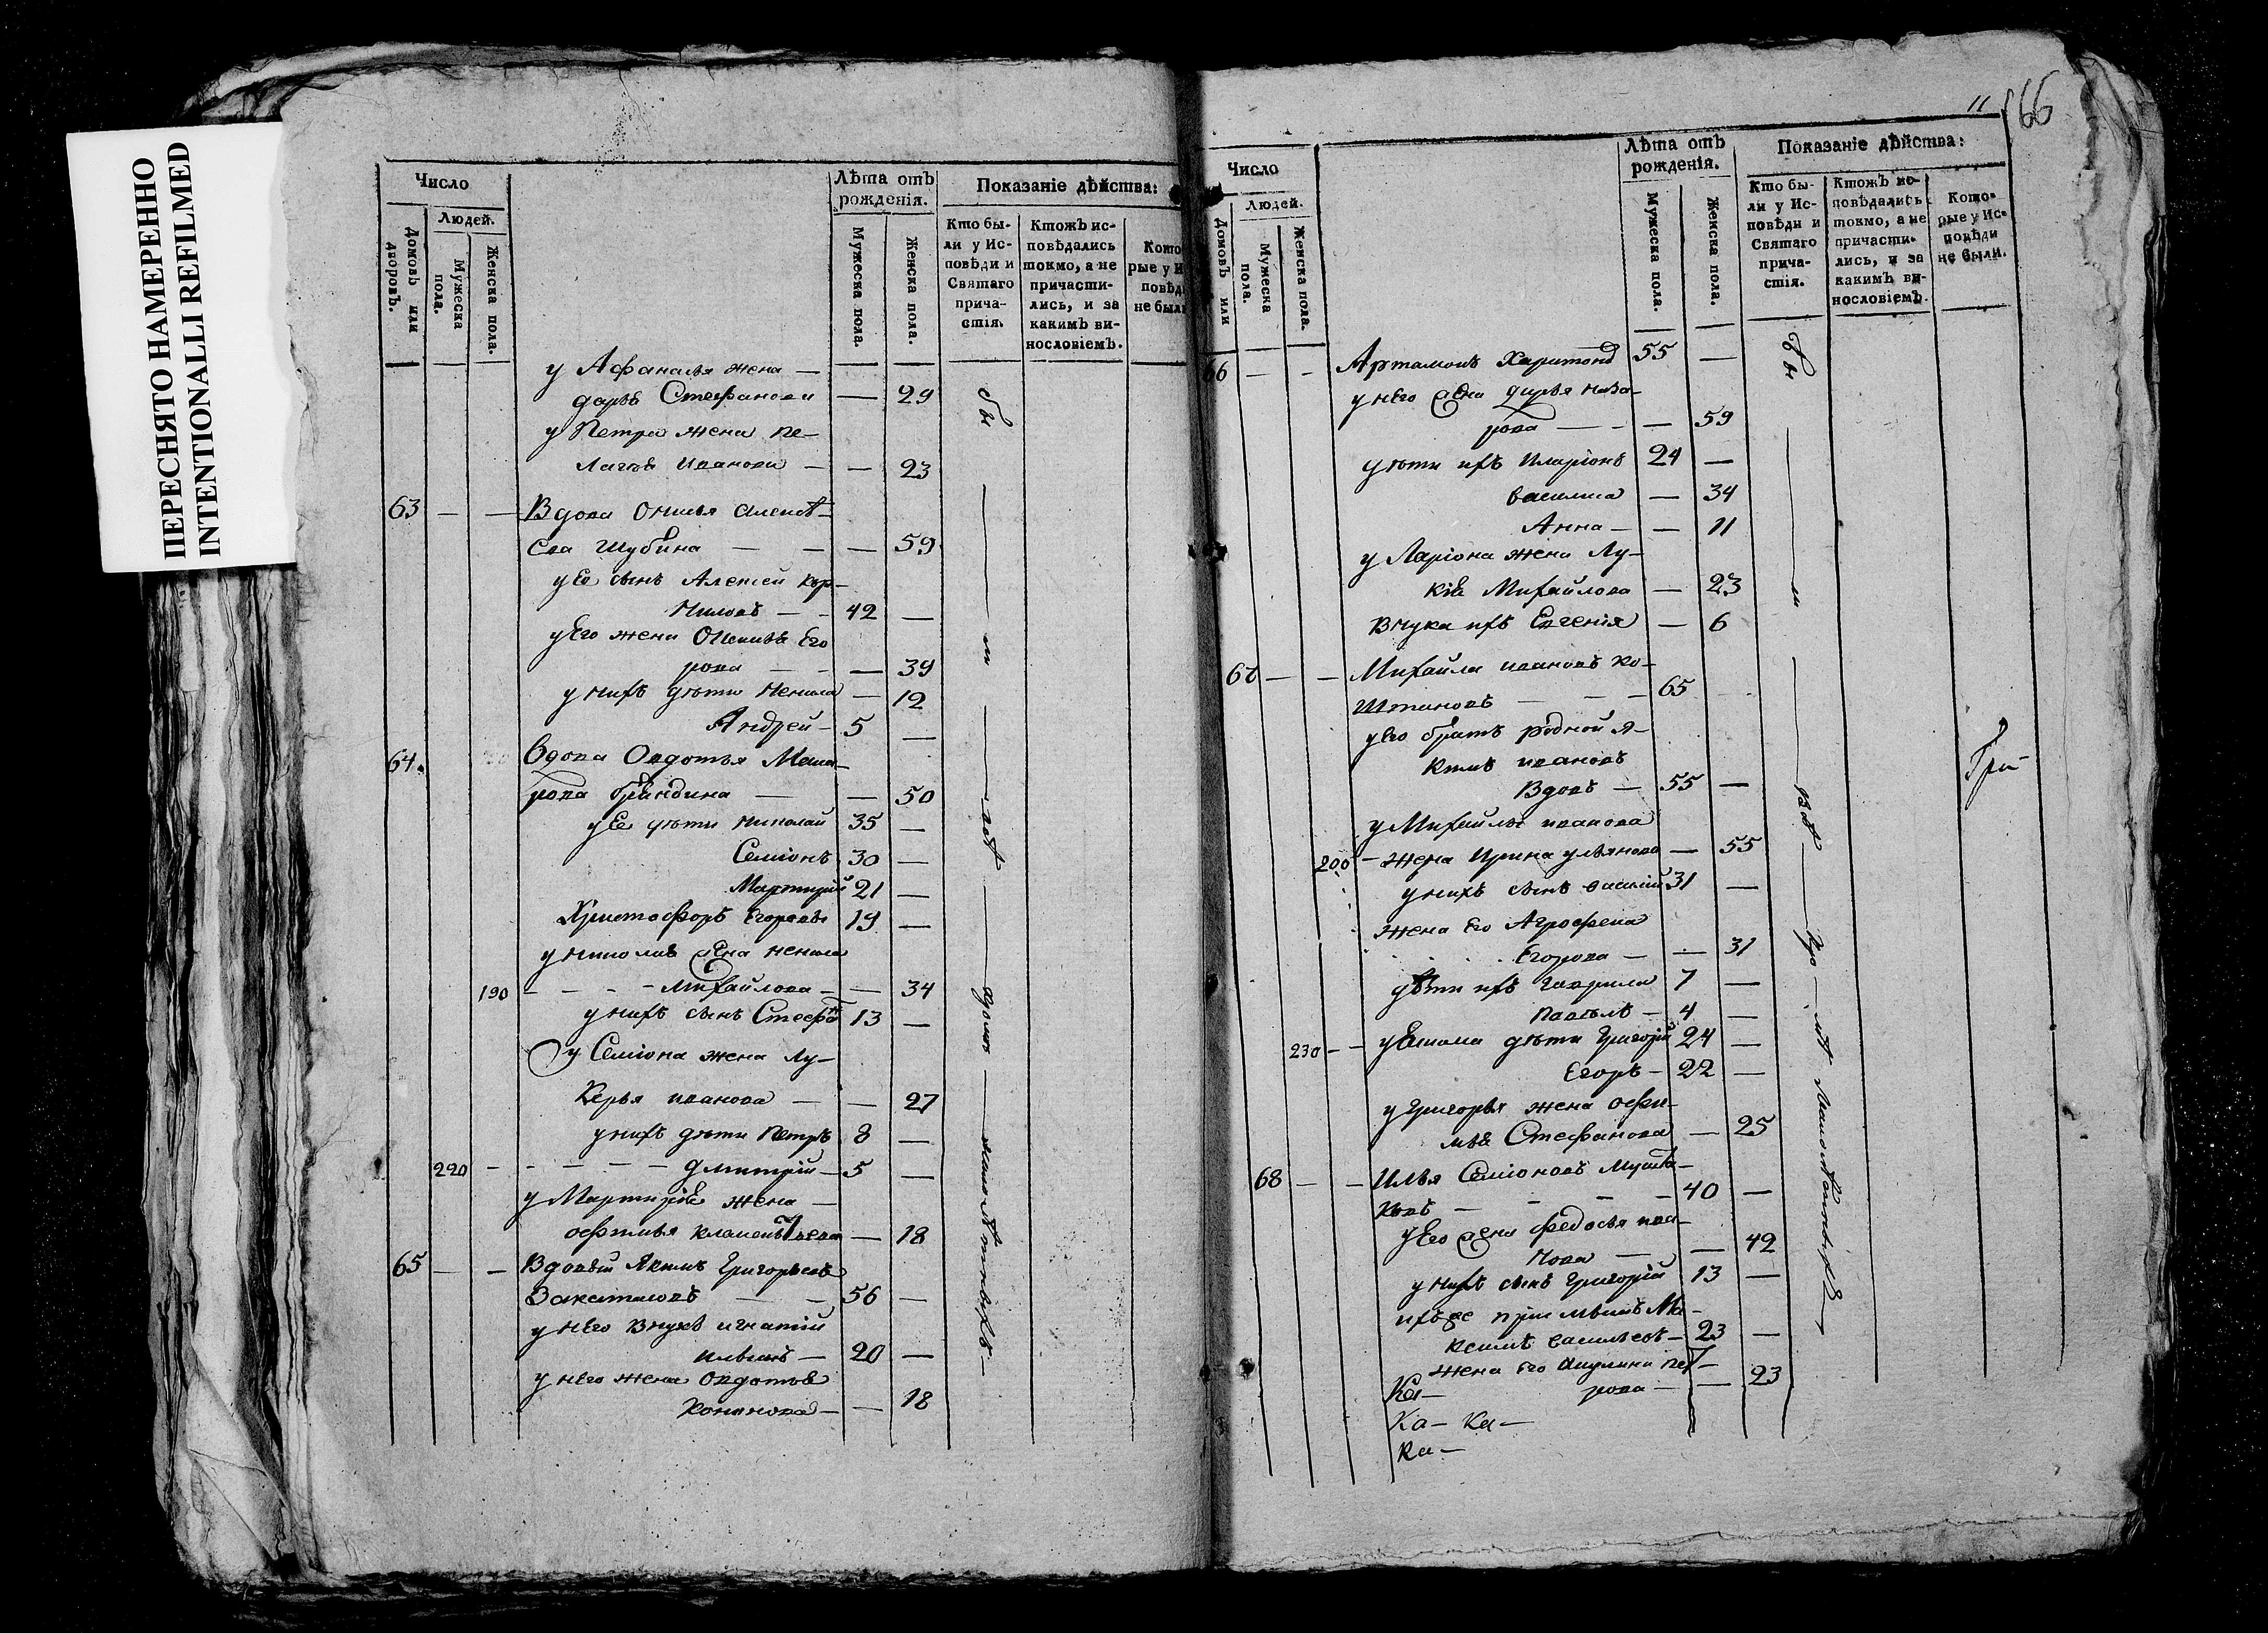 ПЕРЕСНЯТО НАМЕРЕННО
INTENTIONALLI REFILMED
Число
Людей.
Домовъ или дворовъ.
Мужеска пола.
Женска пола.
Лѣта отъ рожденія.
Мужеска пола.
Женска пола.
Показаніе дѣйства:
Кто были у Исповѣди и Святаго причастія.
Ктожъ исповѣдались токмо, а не причастились, и за какимъ винословіемъ.
у Афанасья жена —
дарья Стефанова — 29
у Петра жена Пе-
лагея иванова — — 23
63 — — Вдова
Шубина — — — 59
у Ее сынъ Алексей кор-
ниловъ — — 42 —
у Его жена Его
рова — — — 39
у нихъ дѣти Ненила — 12
Андрей — 5 —
64. Вдова Овдотья
— — 50
у Ее дѣти Николай 35 —
Семіонъ 30 —
Мартирій 21 —
Христофоръ Егоровы 19 —
у Николая жена Ненила
190 — — — — Михайлова — — 34
у нихъ сынъ Стефа 13 —
у Семіона жена Лу-
керья иванова — — 27
у нихъ дѣти Петръ 8 —
220 — — — — — дмитрій — 5 —
у Мартирія жена —
— 18
65 — — Вдовый Якимъ Григорьевъ
— — 56 —
у него внукъ игнатій
ильинъ — 20 —
у него жена Овдотья
Кононова — — 18
11 66
Число
Людей.
Домовъ или
Мужеска пола.
Женска пола.
Лѣта отъ рожденія.
Мужеска пола.
Женска пола.
Показаніе дѣйства:
Кто были у Исповѣди и Святаго причастія.
Ктожъ исповѣдались токмо, а не причастились, и за какимъ винословіемъ.
Которые у Исповѣди не были.
66 — — Артамонъ Харитоно 55 —
у него жена дарья Наза-
рова — — — 59
дѣти ихъ иларіонъ 24 —
василиса — 34
Анна — — 11
у Ларіона жена Лу-
кія Михайлова — 23
внука ихъ Евгенія — 6
67 — — Михайла ивановъ ко-
— — 65
у его братъ родной я-
кимъ ивановъ
вдовъ — 55 —
у Михайлы иванова
200 — жена Ирина ульянова — 55
у нихъ сынъ василій 31 —
жена Его Агрофена
Егорова — — 31
дѣти ихъ гаврила 7 —
павелъ — 4 —
230 — — дѣти Григорій 24 —
Егоръ — 22 —
у Григорья жена офи-
мья Стефанова — 25
68 — — Илья Семіоновъ
— — — 40 —
у Его жена федосья ива-
нова — — 42
у нихъ сынъ григорій 13 —
Ма-
ксимъ васильевъ — 23 —
жена Его Акулина пет-
рова — — 23
Ка —
Ка — Ка —
Ка —
Гри-